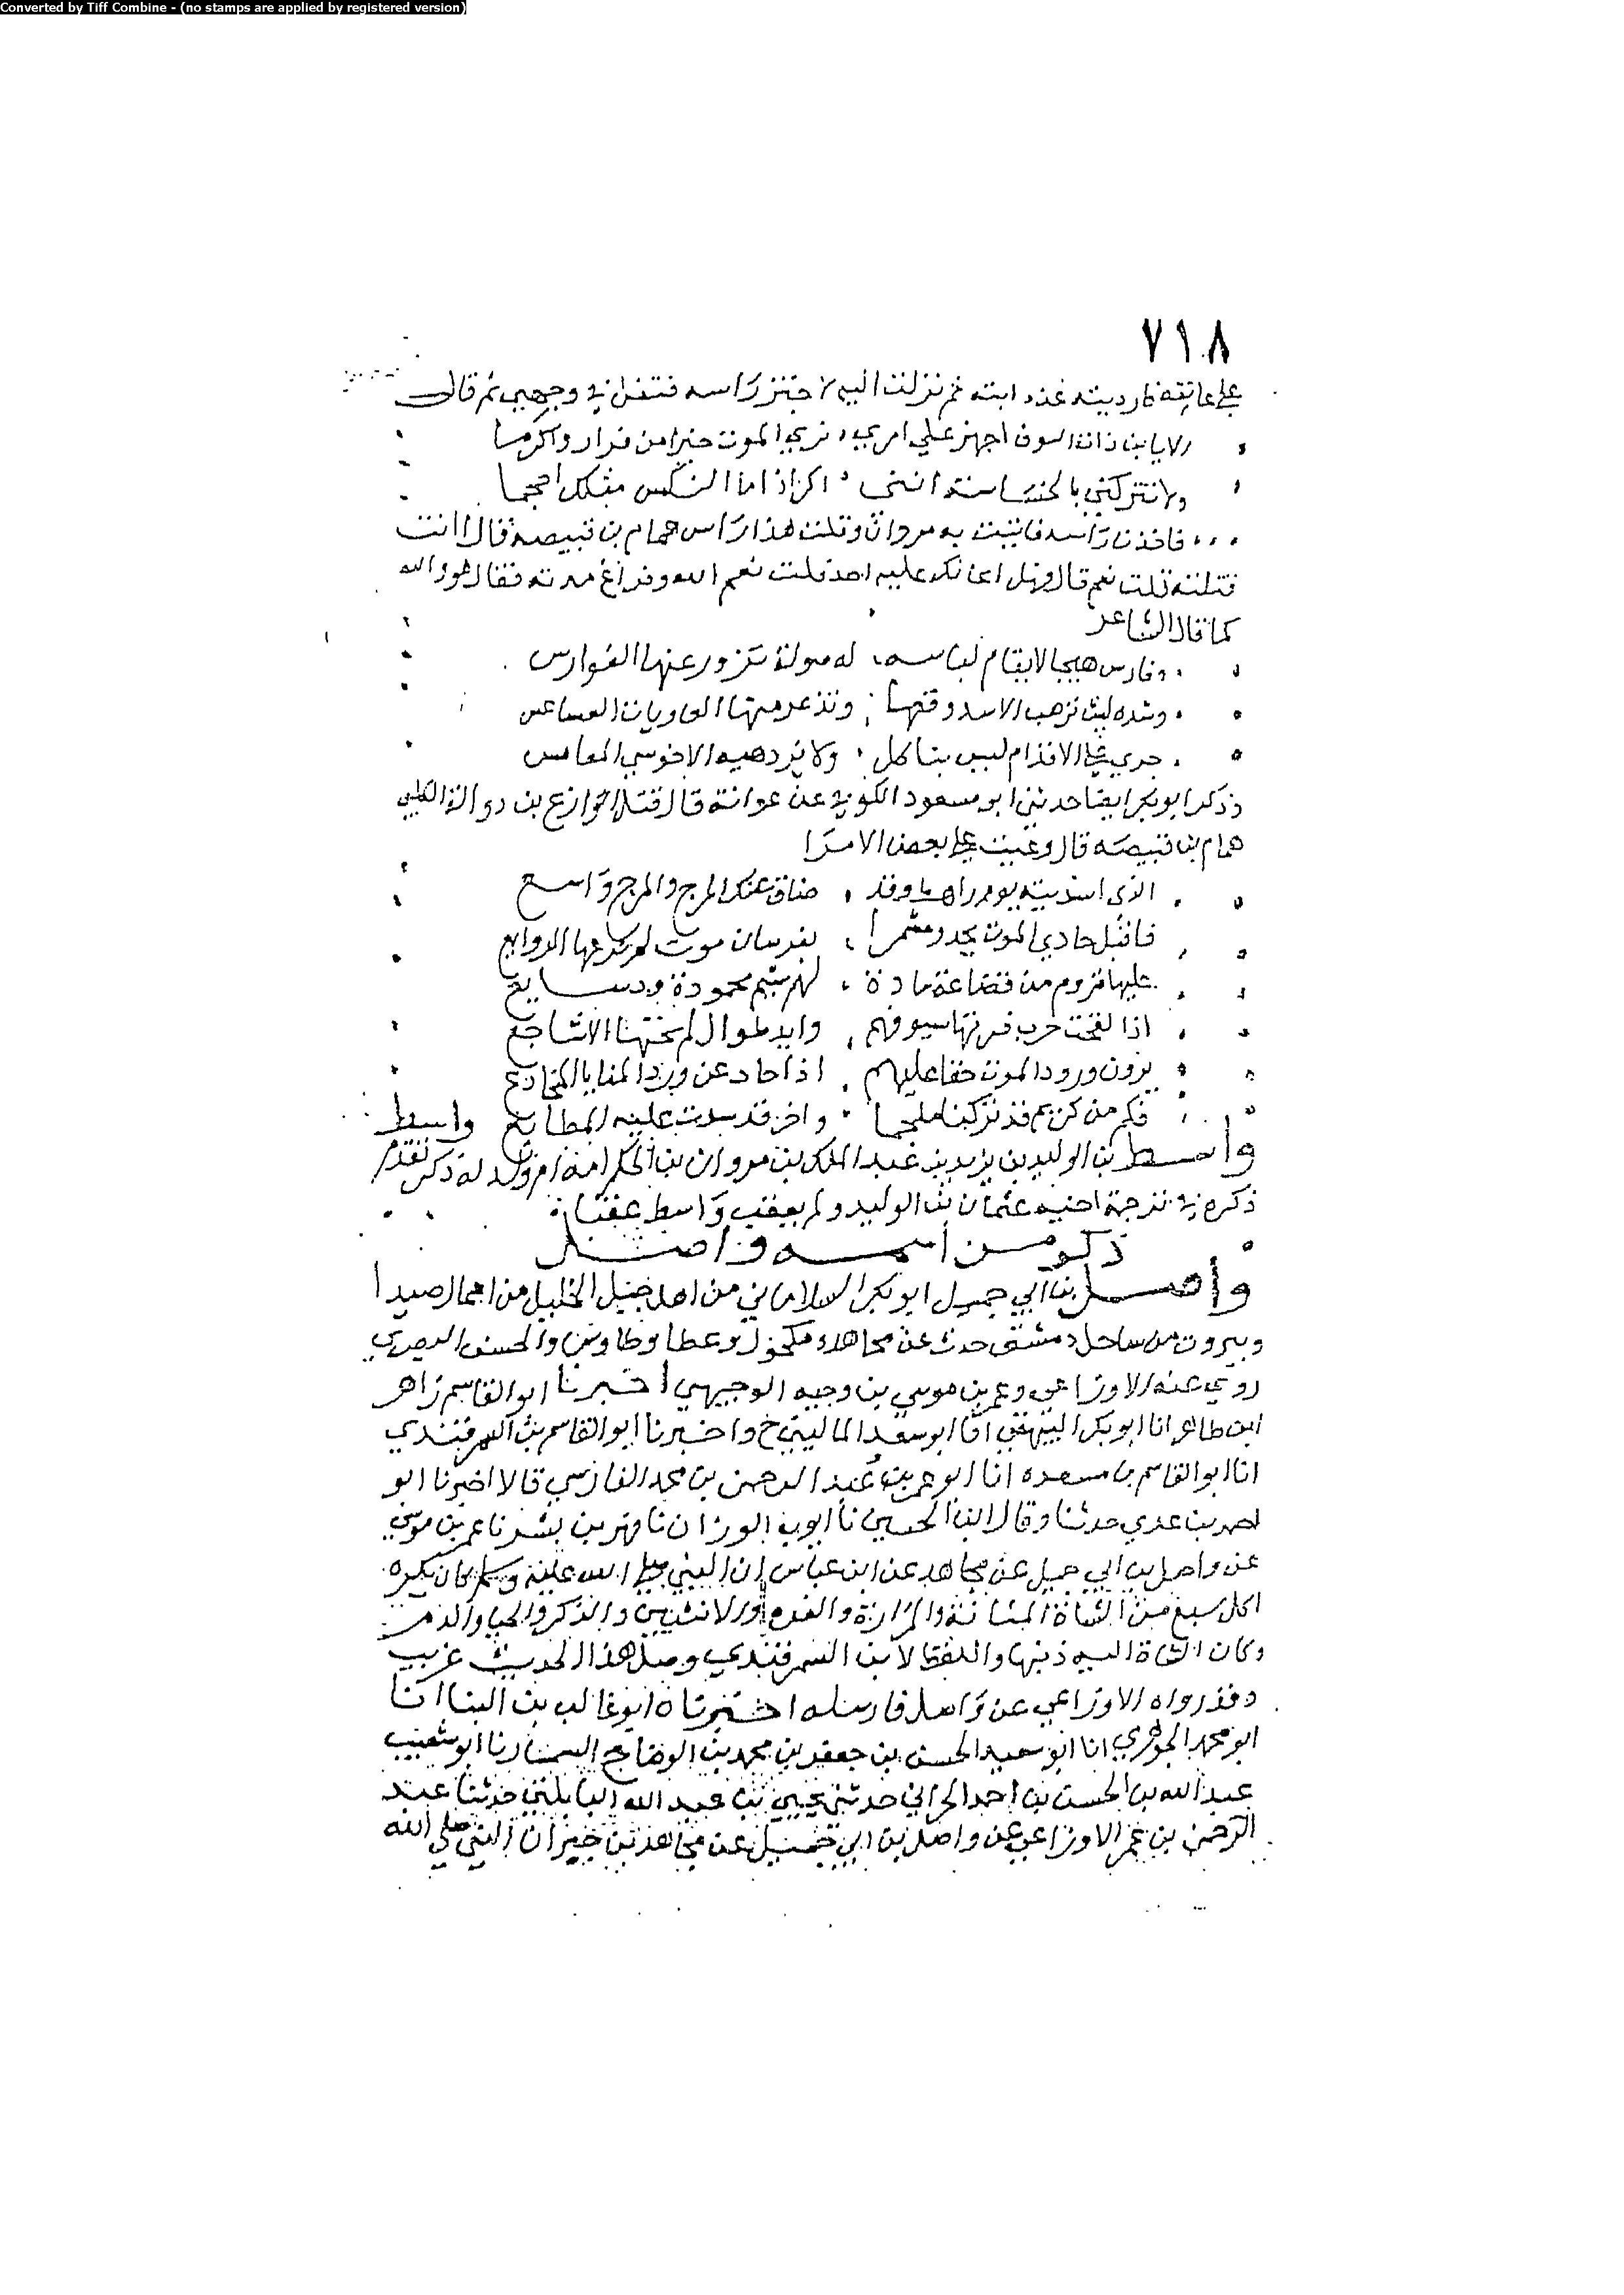 Converted by Tiff Combine - (no stamps are applied by registered version)
٧١٨
على عاتقه فارديته عن دابته ثم نزلت اليه لاحتز راسه فتفل في وجهي ثم قال
الا يا بن ذات السوف اجهز على امري يرى الموت خيرا من فرار واكرما
ولا تتركني بالحشاشة انني اكر اذا ما النكس مثلك احجما
فاخذت راسه فاتيت به مروان وقلت هذا راس همام بن قبيصة فقال انت
قتلته قلت نعم قال وهل اعانك عليه احد قلت نعم الله وفراغ مدته فقال هو والله
كما قال الشاعر
وفارس هيجا لا يقام لباسه له صولة تزور عنها الفوارس
وشده ليث ترهب الاسد وقعها وتذعر منها العاويات العساعس
جري على الاقدام ليس بناكل ولا يزدهيه الاخوسي المغامس
ذكر ابو بكر ايضا حدثني ابو مسعود الكوفي عن عوانة قال قتل الوازع بن دوالة الكلبي
همام بن قبيصة قال وعتبت على بعض الامرا
الذي اسديته يوم راهط وقد ضاق عنك المرج والمرج واسع
فاقبل حادي الموت يحدو مشمرا بفرسان موت لم ترعها الروايع
عليها قروم من قضاعة سادة لهم شيم محمودة ودسايع
اذا لقحت حرب مرتها سيوفهم وايد طوال لم تخنها الاشاجع
يرون ورود الموت حقا عليهم اذا حاد عن ورد المنايا المخادع
فكم من كريم قد تركنا ملحبا واخر قد سدت عليه المطالع واسط
واسط بن الوليد بن يزيد بن عبد الملك بن مروان بن الحكم امه ام ولد له ذكر تقدم
ذكره في ترجمة اخيه عثمان بن الوليد ولم يعقب واسط عقبا
ذكر من اسمه واصل
واصل بن ابي جميل ابو بكر السلاماني من اهل جبل الخليل من اعمال صيدا
وبيروت من ساحل دمشق حدث عن مجاهد ومكحول وعطا وطاوس والحسن البصري
روى عنه الاوزاعي وعمر بن موسى بن وجيه الوجيهي اخبرنا ابو القاسم زاهر
ابن طاهر انا ابو بكر البيهقي انا ابو سعد الماليني ح واخبرنا ابو القاسم بن السمرقندي
انا ابو القاسم بن مسعدة انا ابو عمرو عبد الرحمن بن محمد الفارسي قالا اخبرنا ابو
احمد بن عدي حدثنا وقال انبا الحسين نا ايوب الوزان نا فهر بن بشر نا عمر بن موسى
عن واصل بن ابي جميل عن مجاهد عن ابن عباس ان النبي صلى الله عليه وسلم كان يكره
اكل سبع من الشاة المثانة والمرارة والغدة والانثيين والذكر والحيا والدم
وكان الشاة اليه ذنبها واللفظ لابن السمرقندي وصل هذا الحديث غريب
وقد رواه الاوزاعي عن واصل فارسله اخبرناه ابو غالب بن البنا انا
ابو محمد الجوهري انا ابو سعيد الحسن بن جعفر بن محمد بن الوضاح السمسار نا ابو شعيب
عبد الله بن الحسن بن احمد الحراني حدثني يحيى بن عبد الله البابلتي حدثنا عبد
الرحمن بن عمر الاوزاعي عن واصل بن ابي جميل عن مجاهد بن جبر ان النبي صلى الله